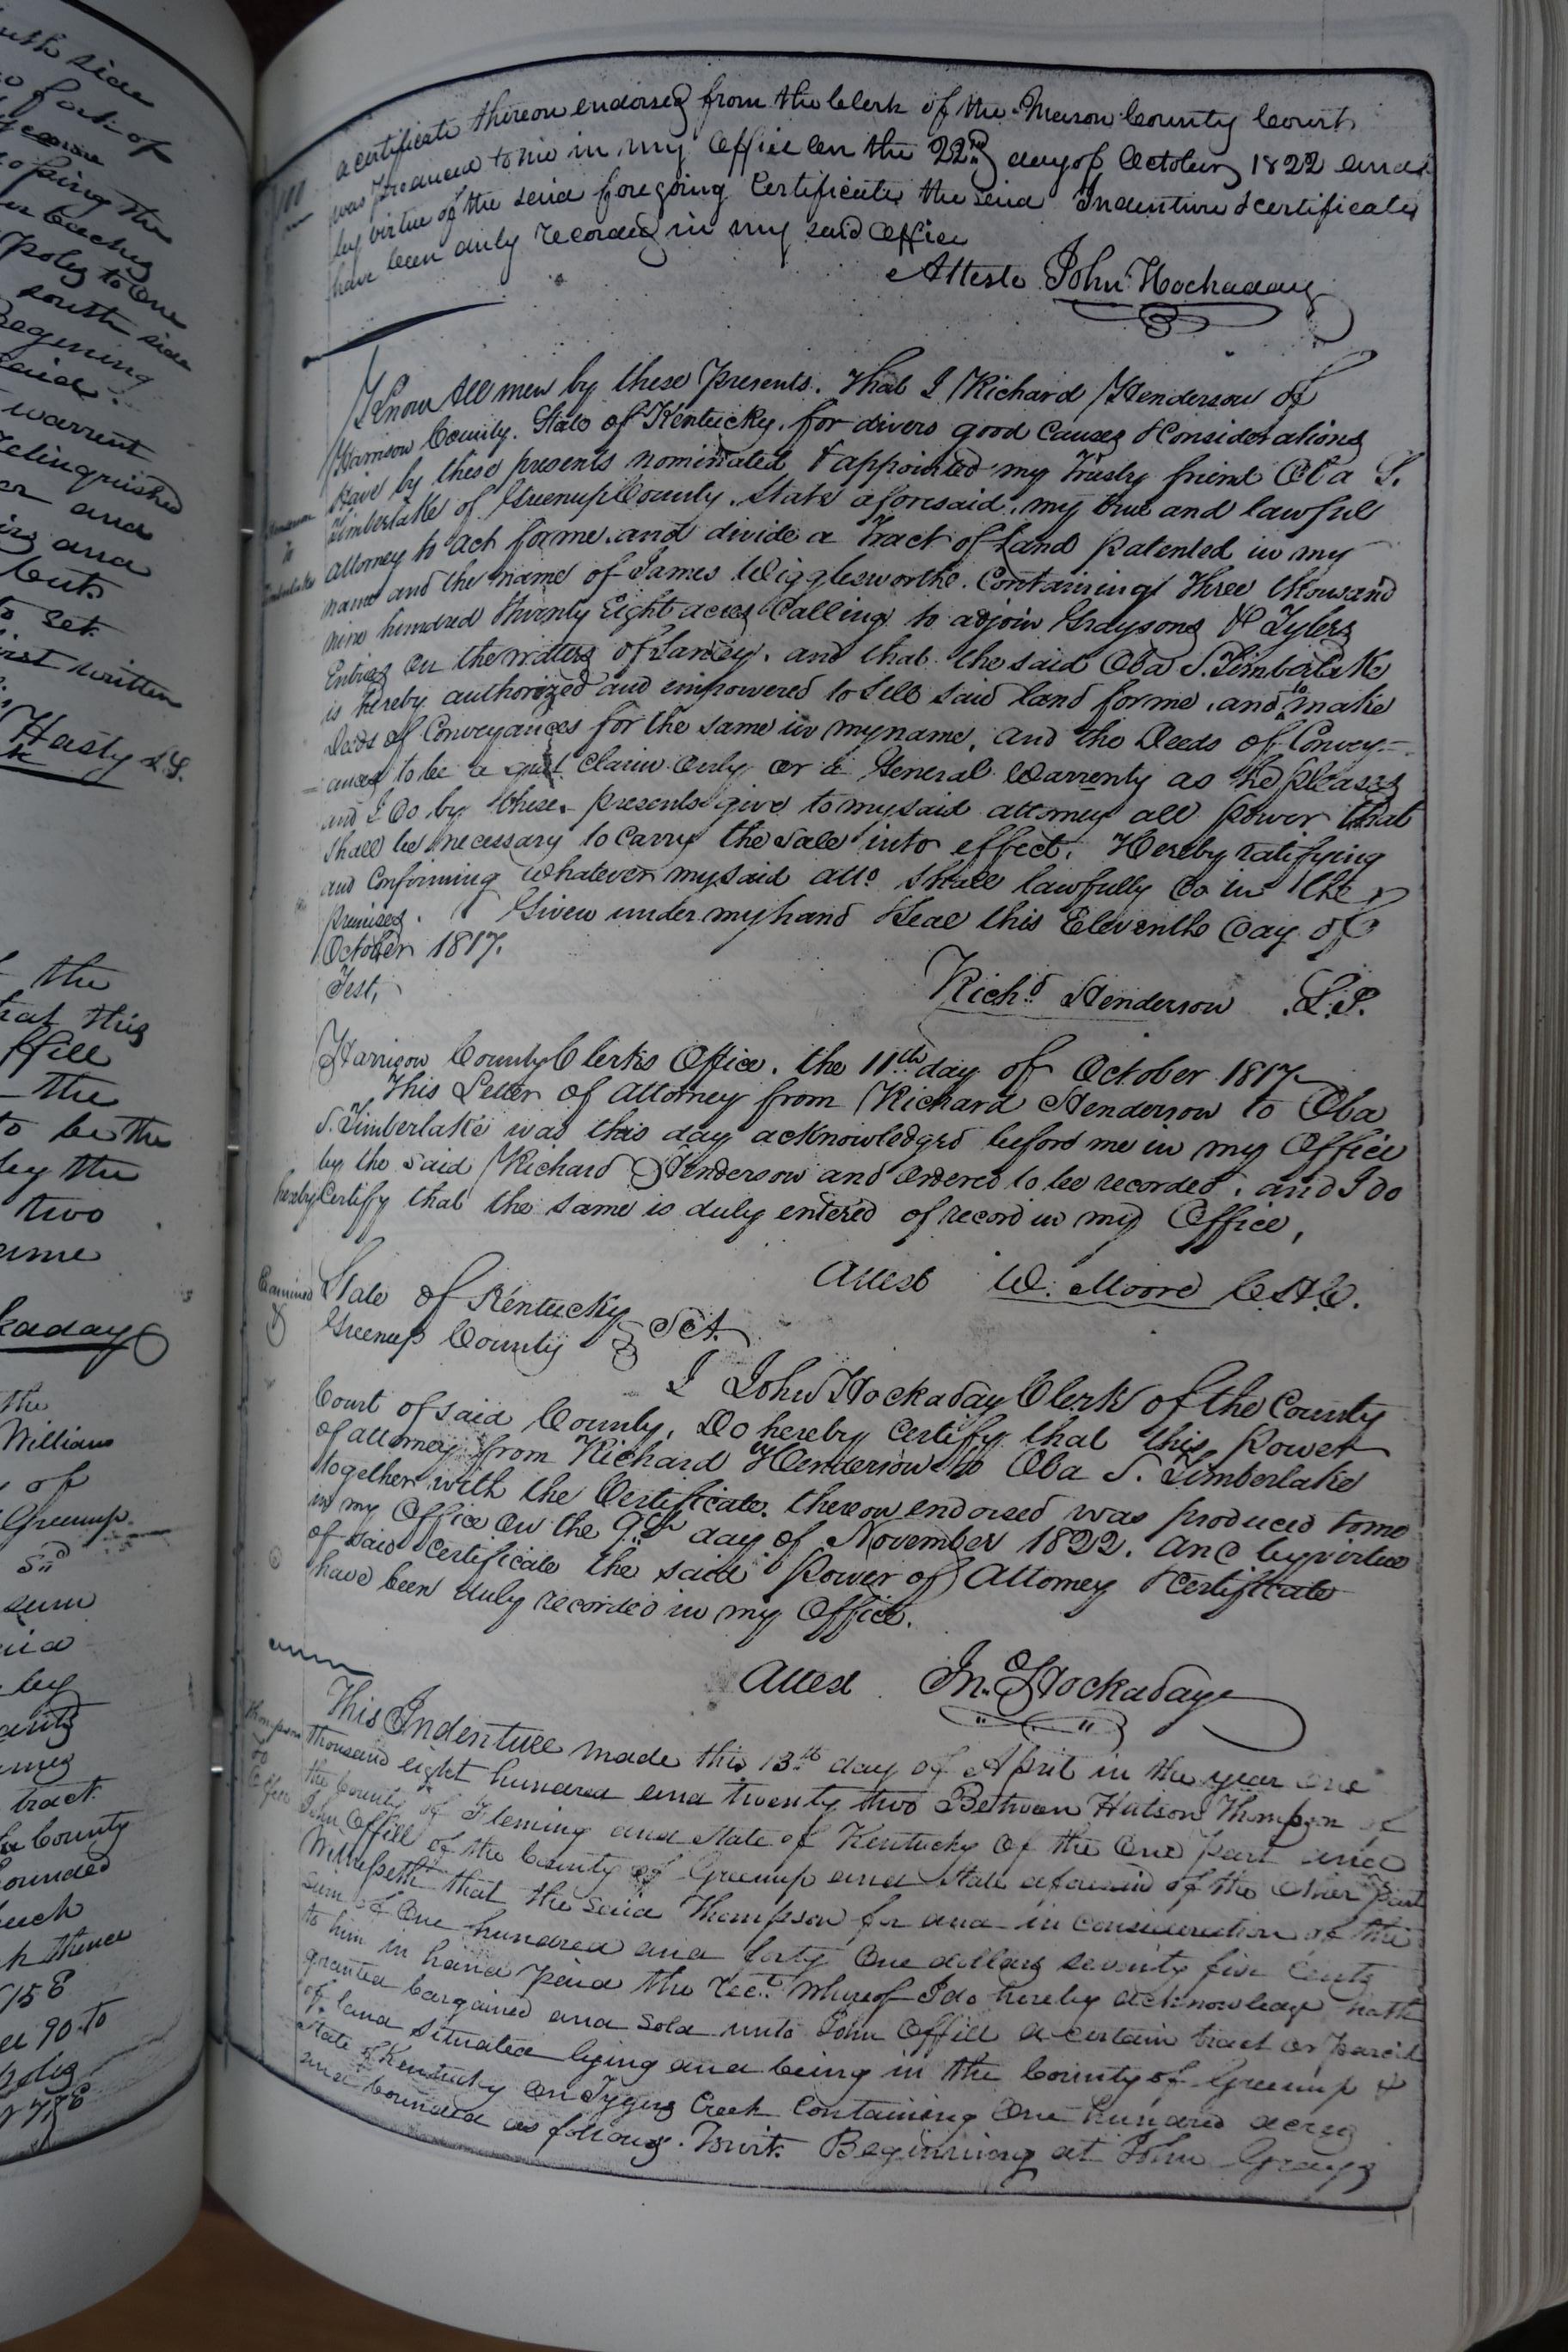 uth side
fork of
to faing the
beechey
poles to one
south side
Begining
said.
warrent
relinquished
and
and
but
to set
first written
Hasty L.S.
the
that this
ffill
the
to be the
by the
two
ame
kaday
the
William
of
Greenup
5th
sum
by
tract
County
bounded
h thence
15 E
90 to
poles
a certificate thereon endorsed from the Clerk of the Mason County Court
was produced to me in my office on the 22nd day of October 1822 and
by virtue of the said foregoing Certificate the said Indenture & certificate
have been duly recorded in my said office
Atteste John Hockaday
Know all men by these presents. That I Richard Henderson of
Harrison County. State of Kentucky. for divers good causes & Considerations
have by these presents nominated & appointed my trusty friend Oba S.
Timberlake of Greenup County. State aforesaid. my true and lawful
attorney to act for me. and divide a Tract of Land patented in my
name and the name of James Wigglesworth. Containing Three thousand
nine hundred thirty Eight acres Calling to adjoin Graysons & Tylers
Entries on the waters of Sandy. and that the said Oba S. Timberlake
is hereby authorized and empowered to Sell said land for me. and to make
Deeds of Conveyances for the same in my name. and the Deeds of Convey-
-ances to be a quit Claim only or a General Warrenty as he pleases
and I do by these presents give to my said attorney all power that
shall be necessary to carry the sale into effect. Hereby ratifying
and confirming whatever my said atto. shall lawfully do in the
premises. Given under my hand & Seal this Eleventh day of
October 1817.
Test,
Richd. Henderson L.S.
Henderson
to
Timberlake
Harrison County Clerks Office. the 11th day of October 1817
This Letter of attorney from Richard Henderson to Oba
S. Timberlake was this day acknowledged before me in my Office
by the said Richard Henderson and ordered to be recorded. and I do
hereby Certify that the same is duly entered of record in my Office,
Attest W. Moore C.H.C.
Examined
State of Kentucky
Greenup County } Sct.
I John Hockaday Clerk of the County
Court of said County, Do hereby Certify that this Power
of attorney from Richard Henderson to Oba S. Timberlake
together with the Certificate thereon endorsed was produced to me
in my Office on the 9th day of November 1822. and by virtue
of said certificate the said Power of Attorney & certificate
have been duly recorded in my Office.
Attest Jno. Hockaday
Thompson
to
Offill
This Indenture made this 13th day of April in the year one
thousand eight hundred and twenty two Between Hutson Thompson of
the County of Fleming and State of Kentucky of the one part and
John Offill of the County of Greenup and State aforesaid of the other part
Witnesseth that the said Thompson for and in consideration of the
sum of One hundred and forty One dollars seventy five Cents
to him in hand paid the rect. whereof I do hereby acknowledge hath
granted bargained and sold unto John Offill a certain tract or parcel
of land situated lying and being in the County of Greenup &
State of Kentucky on Tygers Creek Containing One hundred acres
and bounded as follows. Towit. Beginning at John Grays